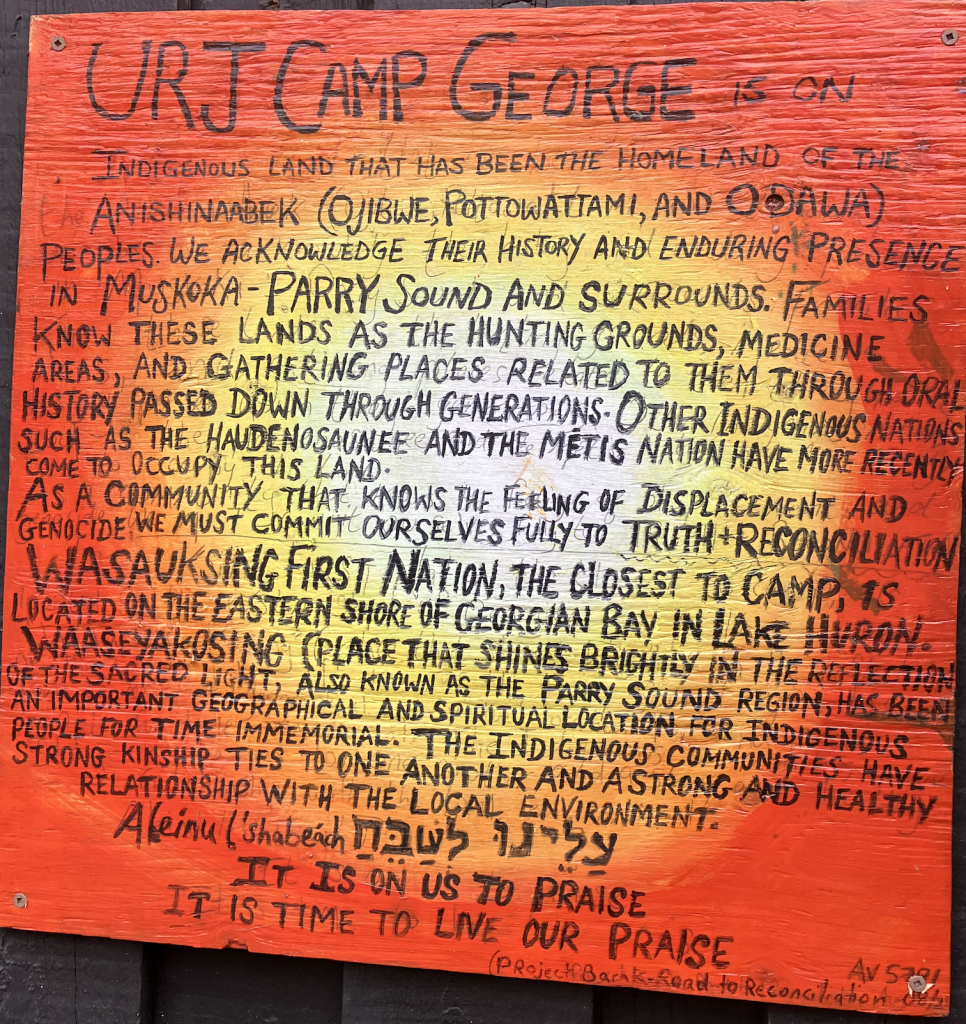 URJ CAMP GEORGE IS ON
INDIGENOUS LAND THAT HAS BEEN THE HOMELAND OF THE
ANISHINAABEK (OJIBWE, POTTOWATTAMI, AND ODAWA)
PEOPLES. WE ACKNOWLEDGE THEIR HISTORY AND ENDURING PRESENCE
IN MUSKOKA - PARRY SOUND AND SURROUNDS. FAMILIES
KNOW THESE LANDS AS THE HUNTING GROUNDS, MEDICINE
AREAS, AND GATHERING PLACES RELATED TO THEM THROUGH ORAL
HISTORY PASSED DOWN THROUGH GENERATIONS. OTHER INDIGENOUS NATIONS
SUCH AS THE HAUDENOSAUNEE AND THE METIS NATION HAVE MORE RECENTLY
COME TO OCCUPY THIS LAND.
AS A COMMUNITY THAT KNOWS THE FEELING OF DISPLACEMENT AND
GENOCIDE WE MUST COMMIT OURSELVES FULLY TO TRUTH + RECONCILIATION
WASAUKSING FIRST NATION, THE CLOSEST TO CAMP, IS
LOCATED ON THE EASTERN SHORE OF GEORGIAN BAY IN LAKE HURON.
WAASEYAKOSING (PLACE THAT SHINES BRIGHTLY IN THE REFLECTION
OF THE SACRED LIGHT, ALSO KNOWN AS THE PARRY SOUND REGION, HAS BEEN
AN IMPORTANT GEOGRAPHICAL AND SPIRITUAL LOCATION FOR INDIGENOUS
PEOPLE FOR TIME IMMEMORIAL. THE INDIGENOUS COMMUNITIES HAVE
STRONG KINSHIP TIES TO ONE ANOTHER AND A STRONG AND HEALTHY
RELATIONSHIP WITH THE LOCAL ENVIRONMENT.
Aleinu l'shabeach עָלֵינוּ לְשַׁבֵּחַ
IT IS ON US TO PRAISE
IT IS TIME TO LIVE OUR PRAISE
AV
(Project Barak-Road to Reconciliation